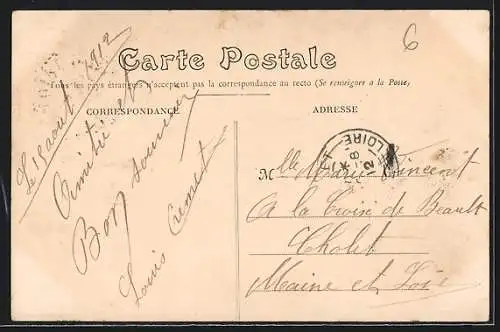 6
Carte Postale
Tous les pays étrangers n'acceptent pas la correspondance au recto (Se renseigner à la Poste)
CORRESPONDANCE
ADRESSE
Le 15 aout 1912
Amitié et
Bon souvenir
Louis
LOIRE
Mlle Marie Vincent
A la Croix de Beault
Cholet
Maine et Loire